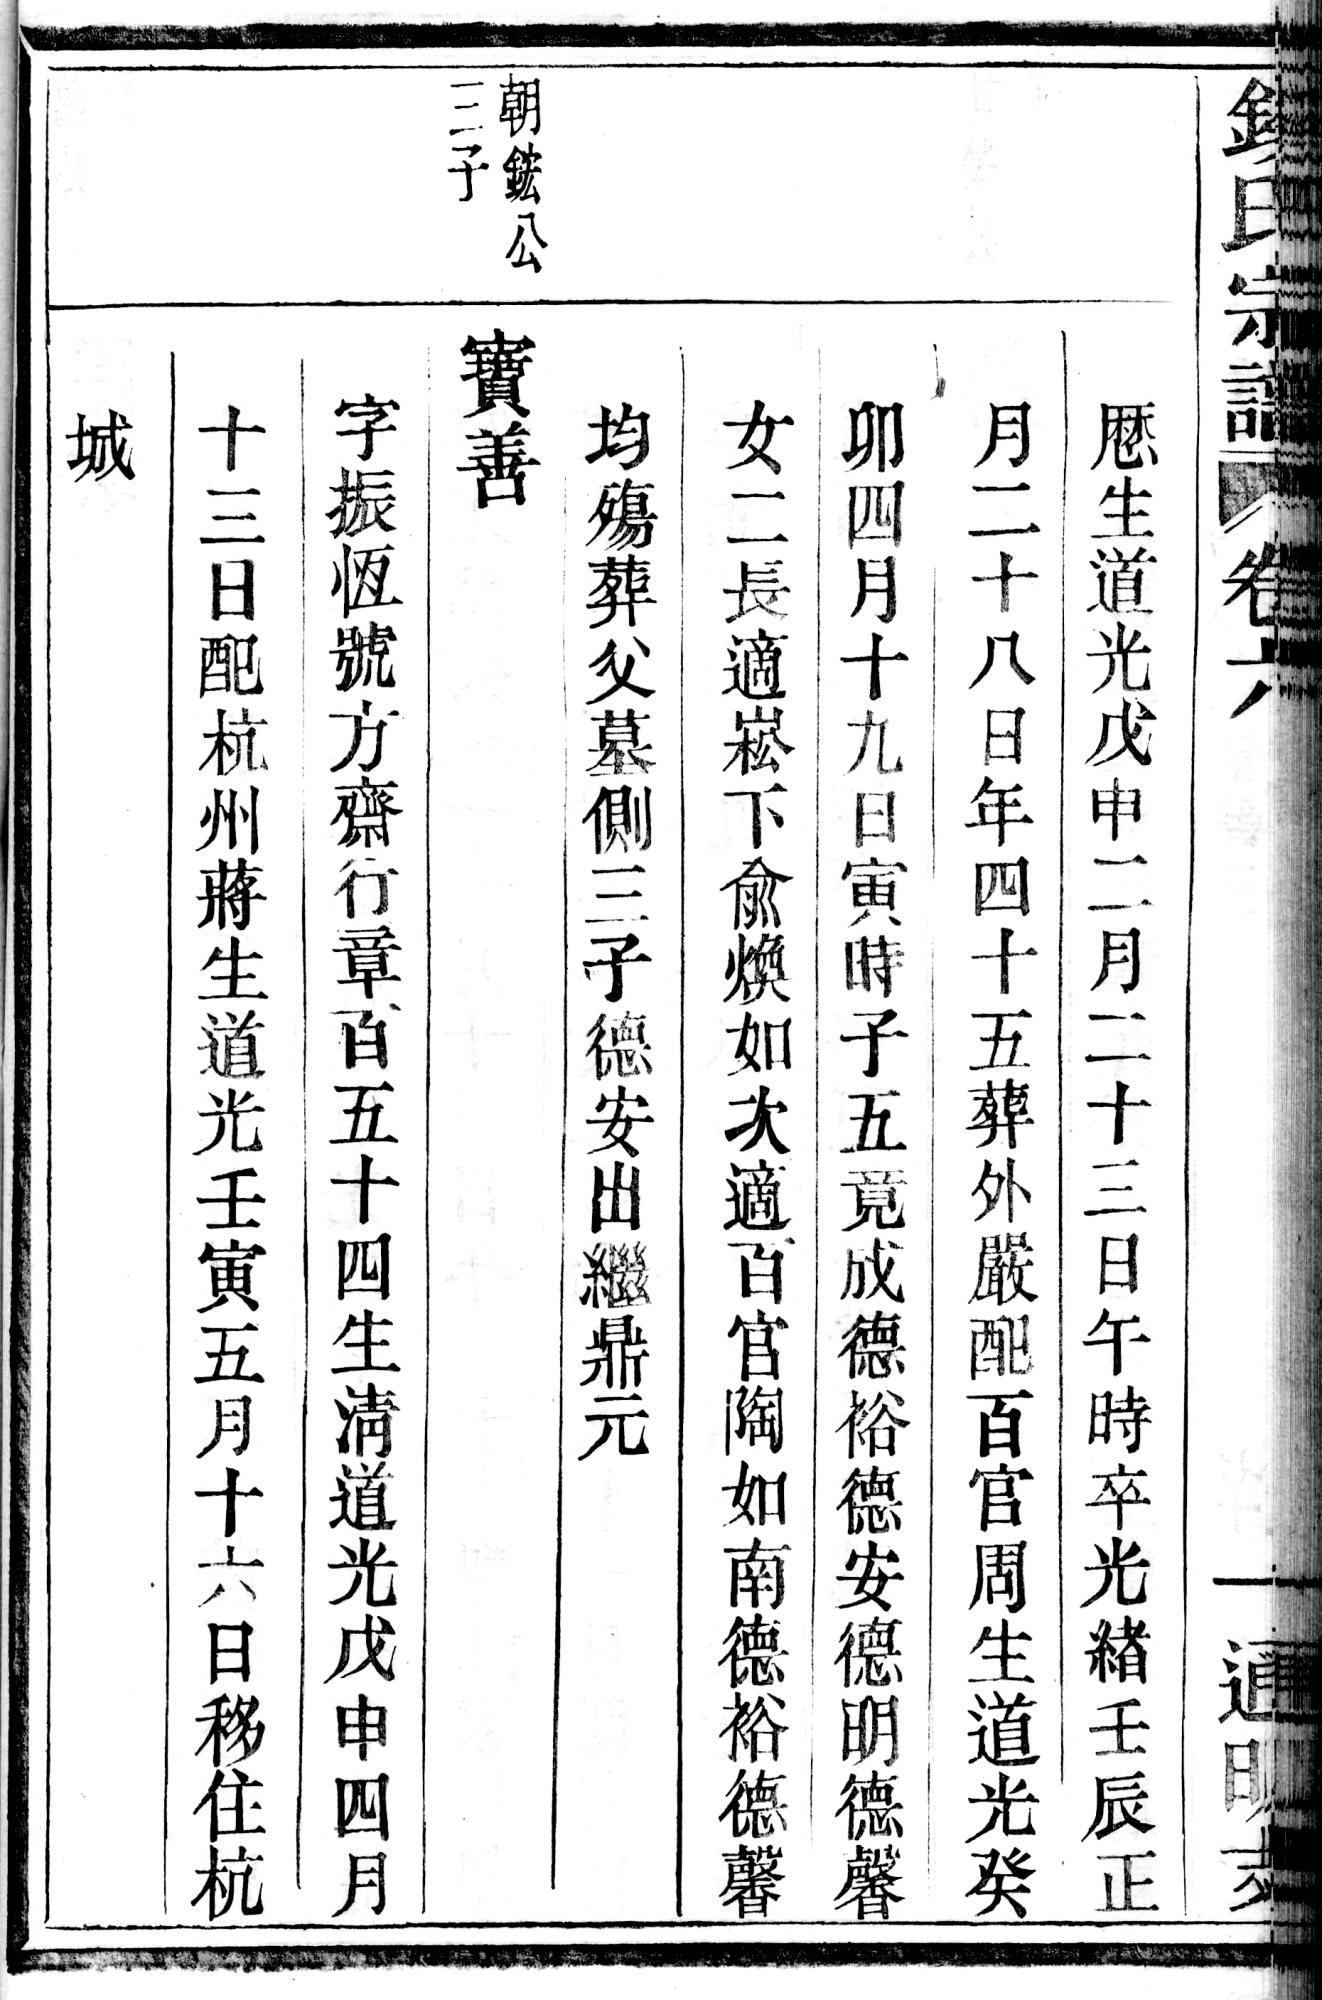 錢氏宗譜
卷六
通明支
厯生道光戊申二月二十三日午時卒光緒壬辰正
月二十八日年四十五葬外嚴配百官周生道光癸
卯四月十九日寅時子五竟成德裕德安德明德馨
女二長適崧下俞煥如次適百官陶如南德裕德馨
均殤葬父墓側三子德安出繼鼎元
朝鋐公
三子
寶善
字振恆號方齋行章百五十四生淸道光戊申四月
十三日配杭州蔣生道光壬寅五月十六日移住杭
城